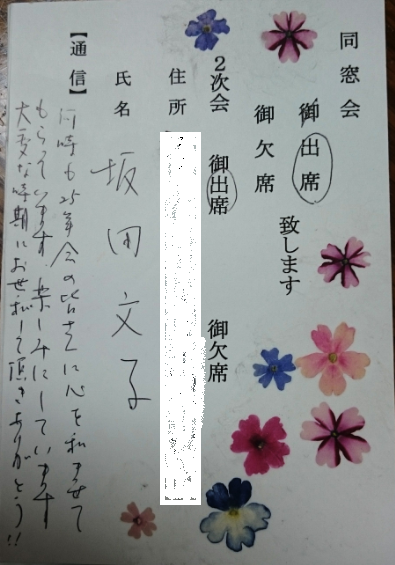 同窓会
御出席
御欠席
致します
2次会 御出席 御欠席
住所
氏名 坂田文子
【通信】何時も25年会の皆さんに心を和ませて
もらっています。楽しみにしています
大変な時期にお世話して頂きありがとう!!